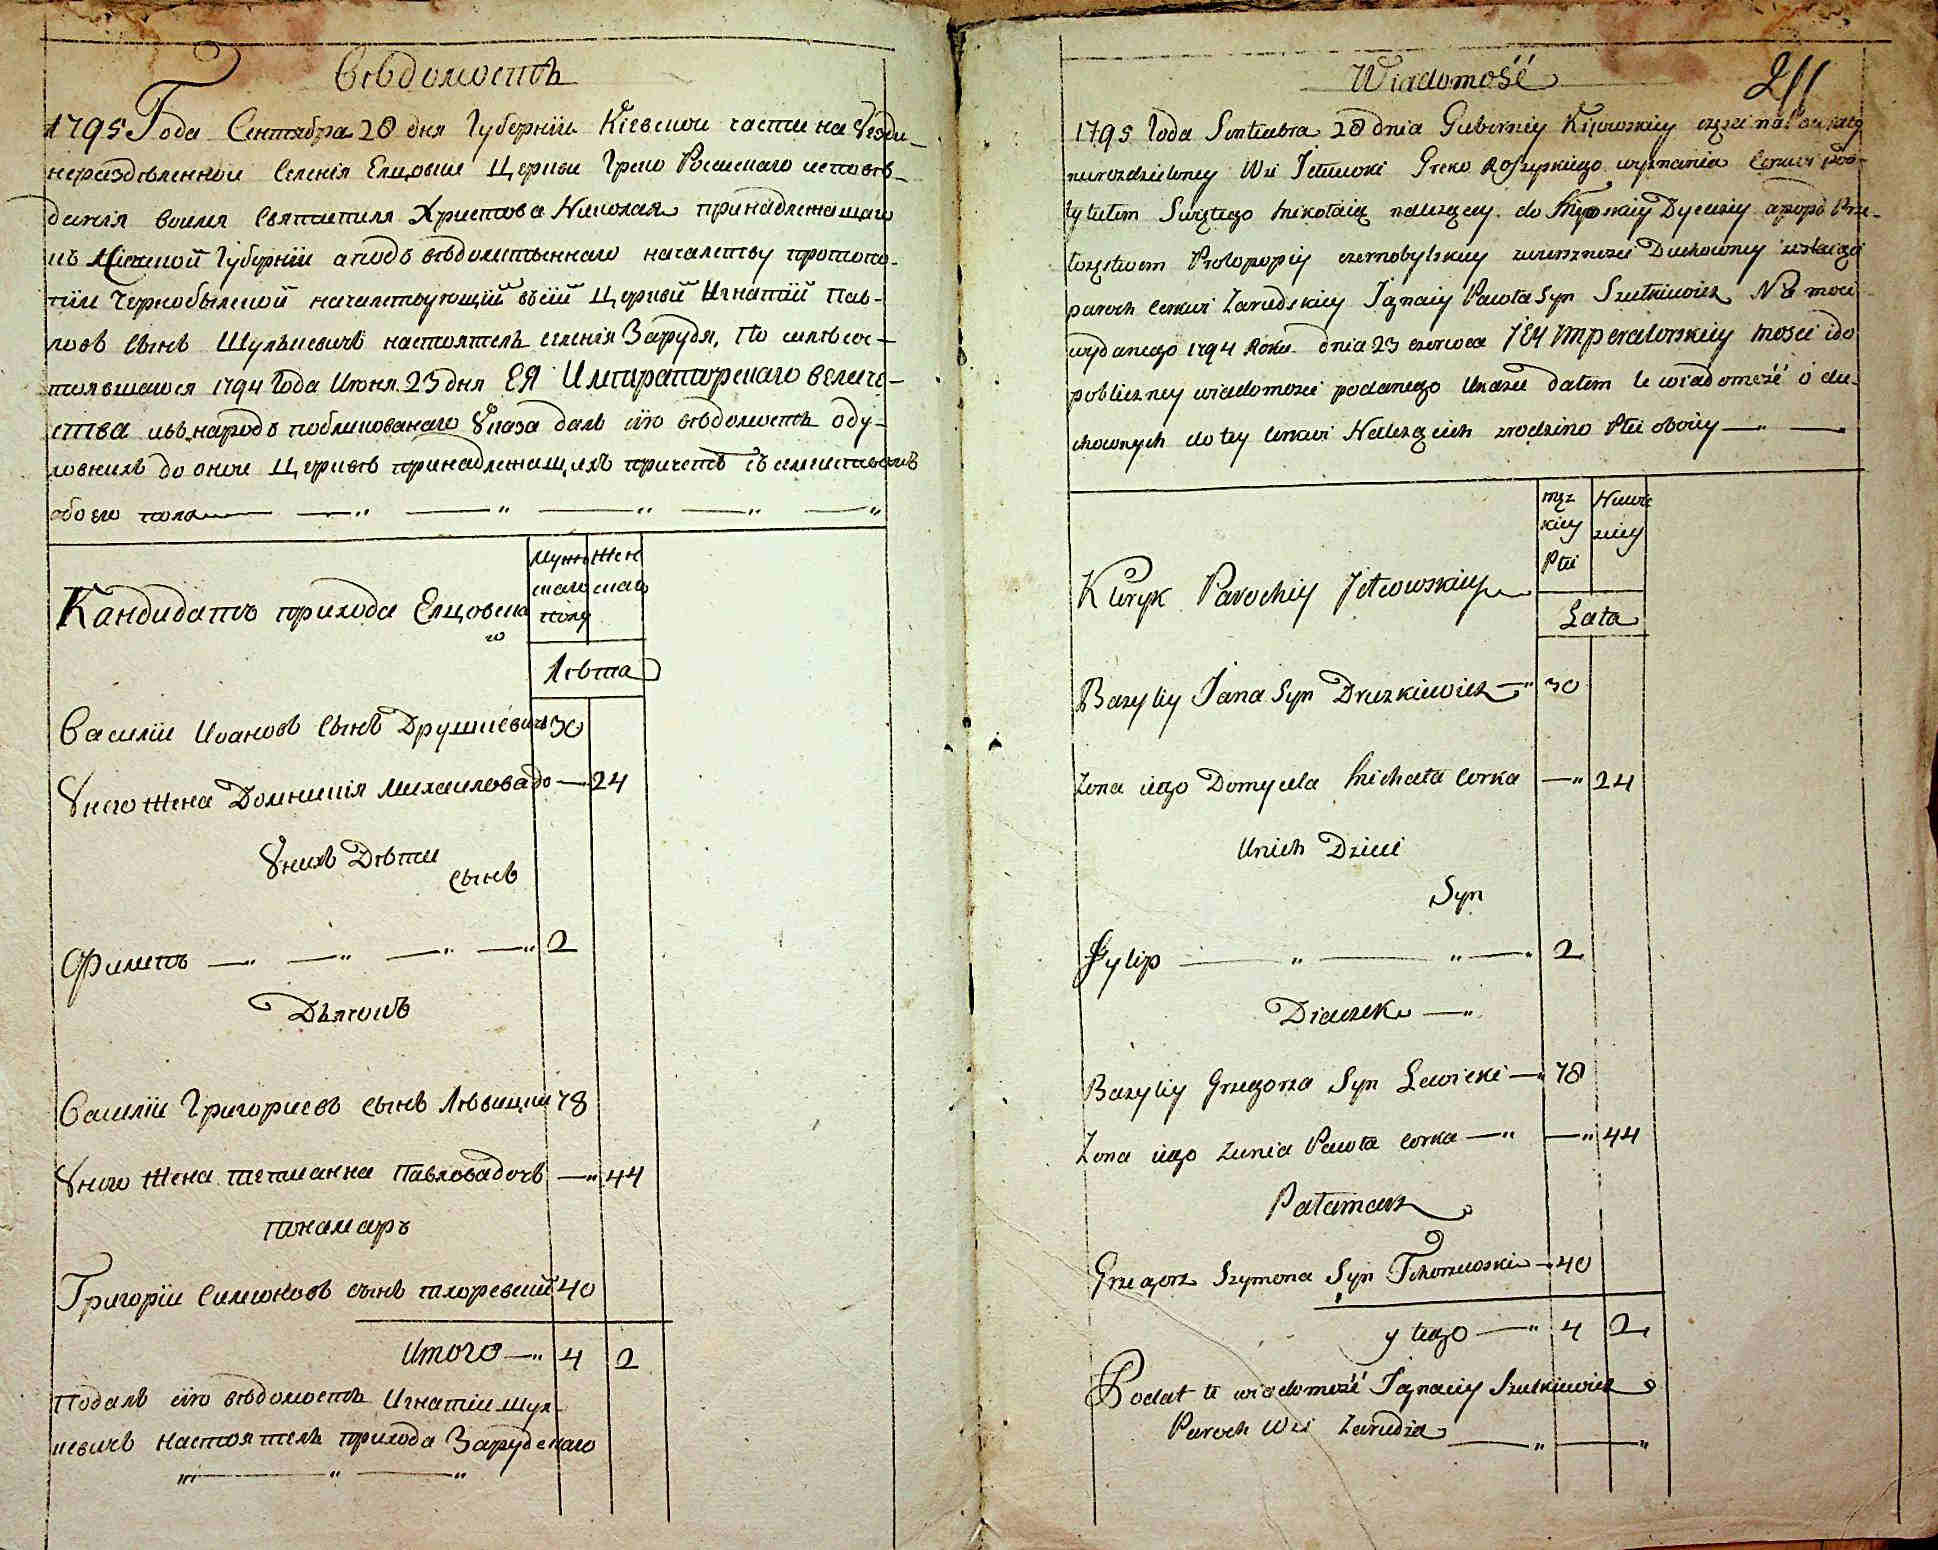 Вѣдомость
1795 Года Сентября 28 дня Губернїи Кїевской части на Уезди
нераздѣленной Селенїя Елцовки Церкви Греко Росийскаго исповѣ-
данїя воимя Святителя Христова Николая принадлежащаго
къ Кїевской Губернїи а подъ вѣдомственнаго началству протопо-
пїи Чернобылской началствующїй въсїй Церквй Игнатїй Пав-
ловъ Сынъ Шулкевичъ настоятель селенїя Зарудя, По силѣ сос-
тоявшагося 1794 Года Июня 23 дня ЕЯ Императорскаго величе-
ства и въ народъ публикованаго Указа далъ сїю вѣдомость о ду-
ховнихъ до оной Церквѣ принадлежащихъ причетѣ съ семействомъ
обоего пола
Мужескаго пола Женскаго
Кандидатъ прихода Елцовскаго
Лѣта
Василїй Ивановъ Сынъ Друшкевичъ 30
У него Жена Домникїя Михаиловадо — 24
У нихъ Дѣти
Сынъ
Филипъ 2
Дьячокъ
Василїй Григориевъ сынъ Лѣвицкий 78
У него Жена татианна Павловадочъ — 44
Пономаръ
Григорїй Симеоновъ сынъ тхоревский 40
Итого — 4 2
Подалъ сїю вѣдомость Игнатїй Шул-
кевичъ настоятель прихода Зарудскаго
Wiadomość 211
1795 Roda Sentiabra 28 dnia Gubernij Kijowskiey części na Powiaty
nierozdzieloney Wsi Jelcowki Greko Roszyskiego wyznania Cerkwi pod
tytułem Swiętego Mikołaia należącey do Kijowskiey Dyecezij a popod Prze-
łożęstwem Protopopij czernobylskiey zwierzności Duchowney
paroch cerkwi Zarudskiey Jgnacij Pawła Syn Szulkiewicz Na moci
wydanego 1794 Roku dnia 23 czerwca JEY Imperatorskiey mości i do
publiczney wiadomości podanego Ukazu dałem te wiadomość o du-
chownych do tey cerkwi Należących z rodzino Płci oboiey
męzkiey Płci Niewieściey
Kliryk Parochij Jelcowskiey
Lata
Bazylij Jana Syn Druzkiewicz 30
Zona iego Domycela Michała Corka — 24
U nich Dzieci
Syn
Fylip 2
Diaczek
Bazylij Grzegorza Syn Lewicki 78
Zona iego Pawła Corka — 44
Patamarz
Grzegorz Szymona Syn Tchorzewski 40
y tego — 4 2
Podał te wiadomość Jgnacij Szulkiewicz
Paroch Wsi Zarudzia